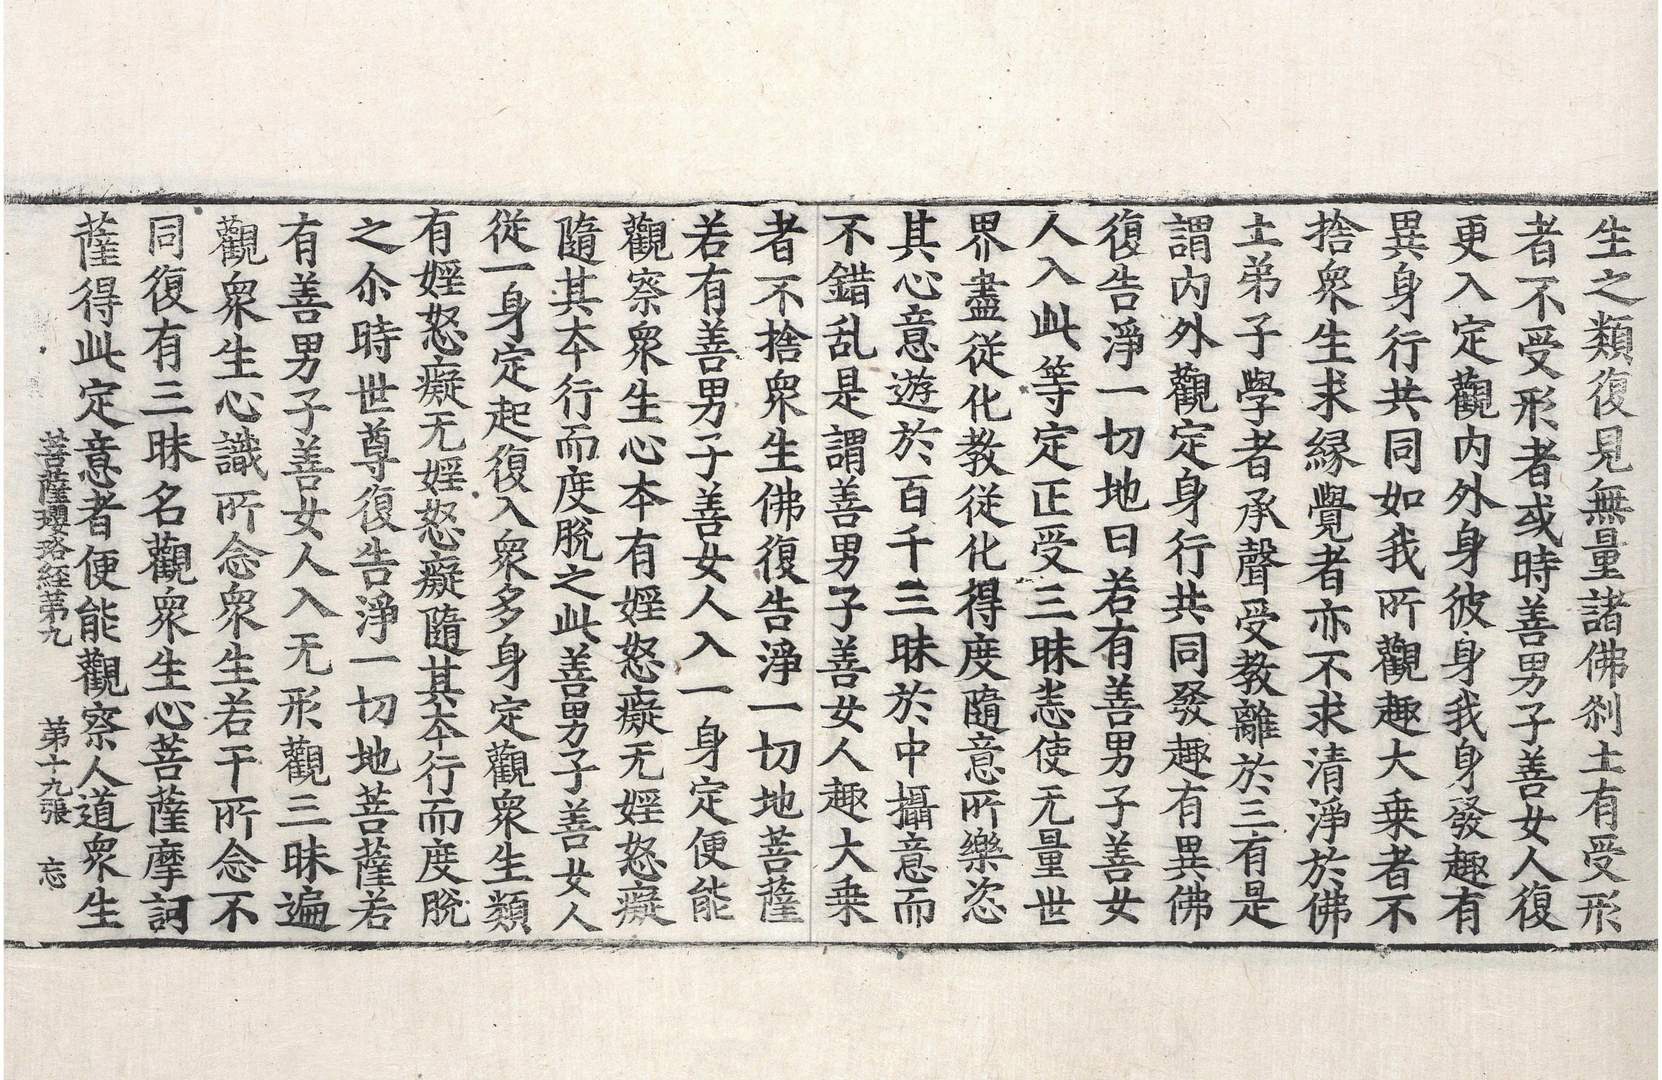 生之類復見無量諸佛刹土有受形
者不受形者或時善男子善女人復
更入定觀内外身彼身我身發趣有
異身行共同如我所觀趣大乗者不
捨衆生求縁覺者亦不求清淨於佛
土弟子學者承聲受教離於三有是
謂内外觀定身行共同發趣有異佛
復告淨一切地曰若有善男子善女
人入此等定正受三昧悉使无量世
界盡從化教從化得度隨意所樂恣
其心意遊於百千三昧於中攝意而
不錯乱是謂善男子善女人趣大乗
者不捨衆生佛復告淨一切地菩薩
若有善男子善女人入一身定便能
觀察衆生心本有婬怒癡无婬怒癡
隨其本行而度脫之此善男子善女人
從一身定起復入衆多身定觀衆生類
有婬怒癡无婬怒癡隨其本行而度脫
之尒時世尊復告淨一切地菩薩若
有善男子善女人入无形觀三昧遍
觀衆生心識所念衆生若干所念不
同復有三昧名觀衆生心菩薩摩訶
薩得此定意者便能觀察人道衆生
菩薩瓔珞経第九 第十九張 忘